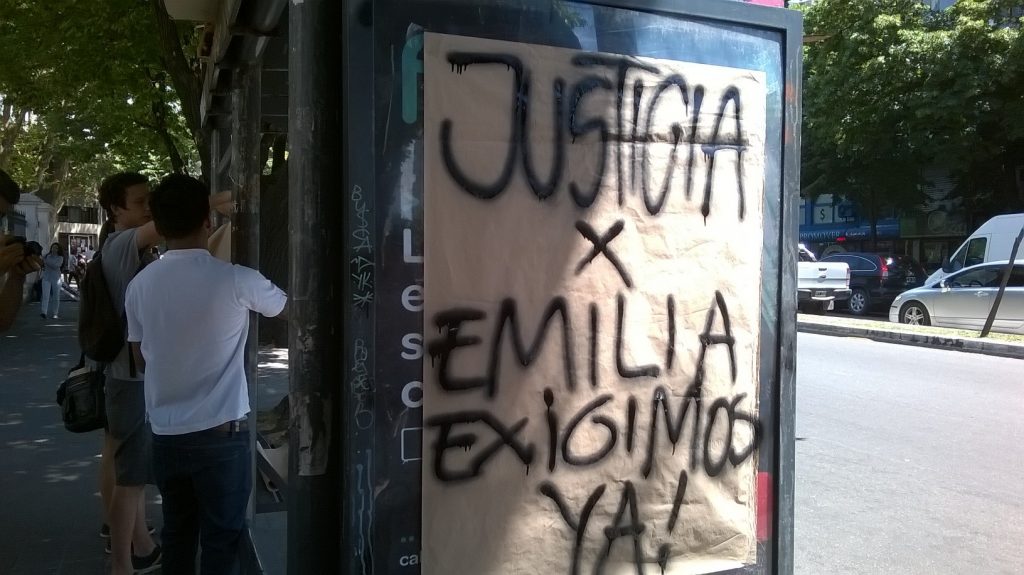 JUSTICIA
X
EMILIA
EXiGIMOS
YA!